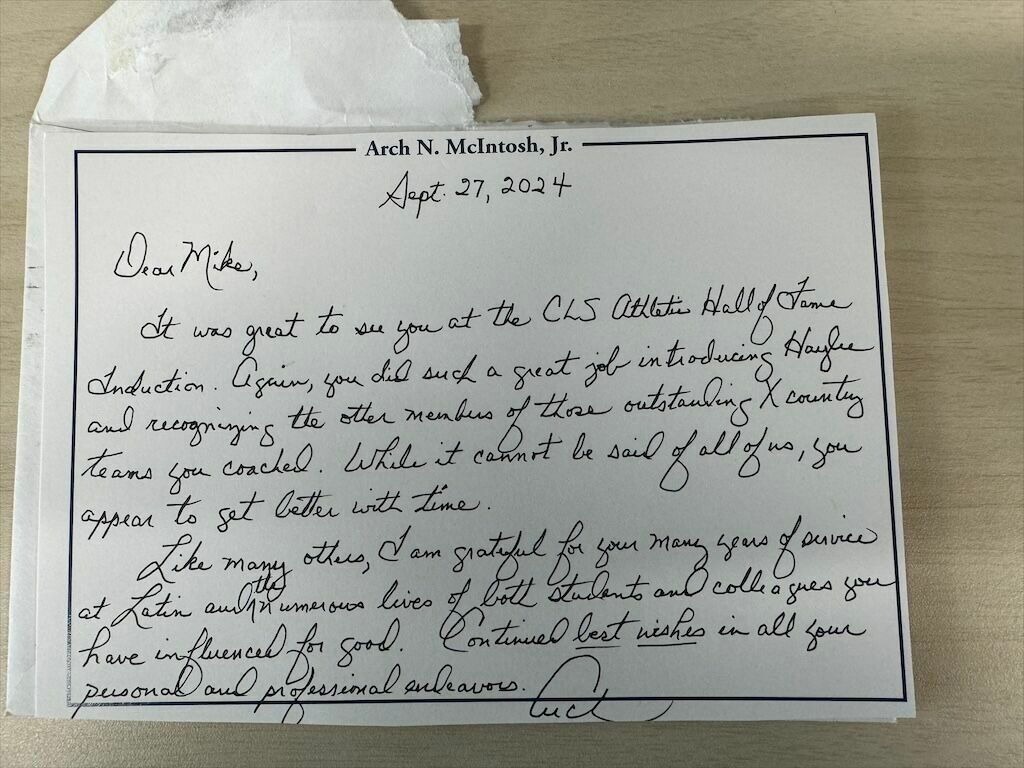 Arch N. McIntosh, Jr.
Sept. 27, 2024
Dear Mike,
It was great to see you at the CLS Athletic Hall of Fame
Induction. Again, you did such a great job introducing Haylee
and recognizing the other members of those outstanding X country
teams you coached. While it cannot be said of all of us, you
appear to get better with time.
Like many others, I am grateful for your many years of service
at Latin and the numerous lives of both students and colleagues you
have influenced for good. Continued best wishes in all your
personal and professional endeavors. Arch